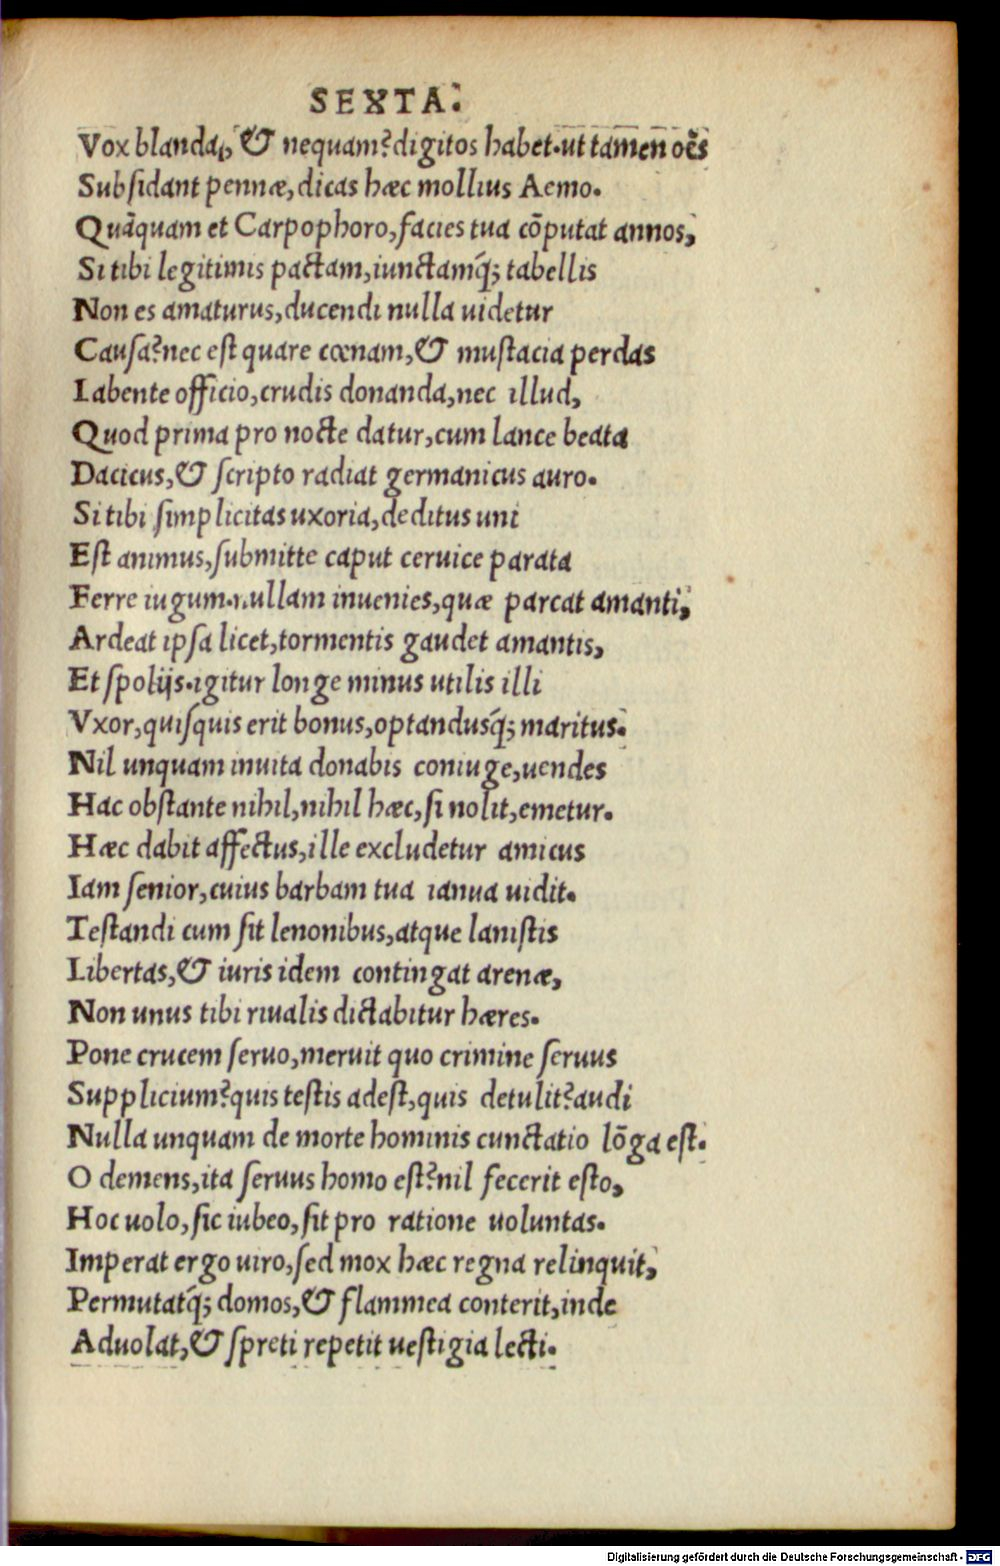 SEXTA.
Vox blanda, & nequam? digitos habet. ut tamen oẽs
Subſidant pennæ, dicas hæc mollius Aemo.
Quãquam et Carpophoro, facies tua cõputat annos,
Si tibi legitimis pactam, iunctamq́; tabellis
Non es amaturus, ducendi nulla uidetur
Cauſa? nec eſt quare cœnam, & muſtacia perdas
Labente officio, crudis donanda, nec illud,
Quod prima pro nocte datur, cum lance beata
Dacicus, & ſcripto radiat germanicus auro.
Si tibi ſimplicitas uxoria, deditus uni
Eſt animus, ſubmitte caput ceruice parata
Ferre iugum. nullam inuenies, quæ parcat amanti,
Ardeat ipſa licet, tormentis gaudet amantis,
Et ſpolijs. igitur longe minus utilis illi
Vxor, quiſquis erit bonus, optandusq́; maritus.
Nil unquam inuita donabis coniuge, uendes
Hac obſtante nihil, nihil hæc, ſi nolit, emetur.
Hæc dabit affectus, ille excludetur amicus
Iam ſenior, cuius barbam tua ianua uidit.
Teſtandi cum ſit lenonibus, atque laniſtis
Libertas, & iuris idem contingat arenæ,
Non unus tibi riualis dictabitur hæres.
Pone crucem ſeruo, meruit quo crimine ſeruus
Supplicium? quis teſtis adeſt, quis detulit? audi
Nulla unquam de morte hominis cunctatio lõga eſt.
O demens, ita ſeruus homo eſt? nil fecerit eſto,
Hoc uolo, ſic iubeo, ſit pro ratione uoluntas.
Imperat ergo uiro, ſed mox hæc regna relinquit,
Permutatq́; domos, & flammea conterit, inde
Aduolat, & ſpreti repetit ueſtigia lecti.
Digitalisierung gefördert durch die Deutsche Forschungsgemeinschaft - DFG